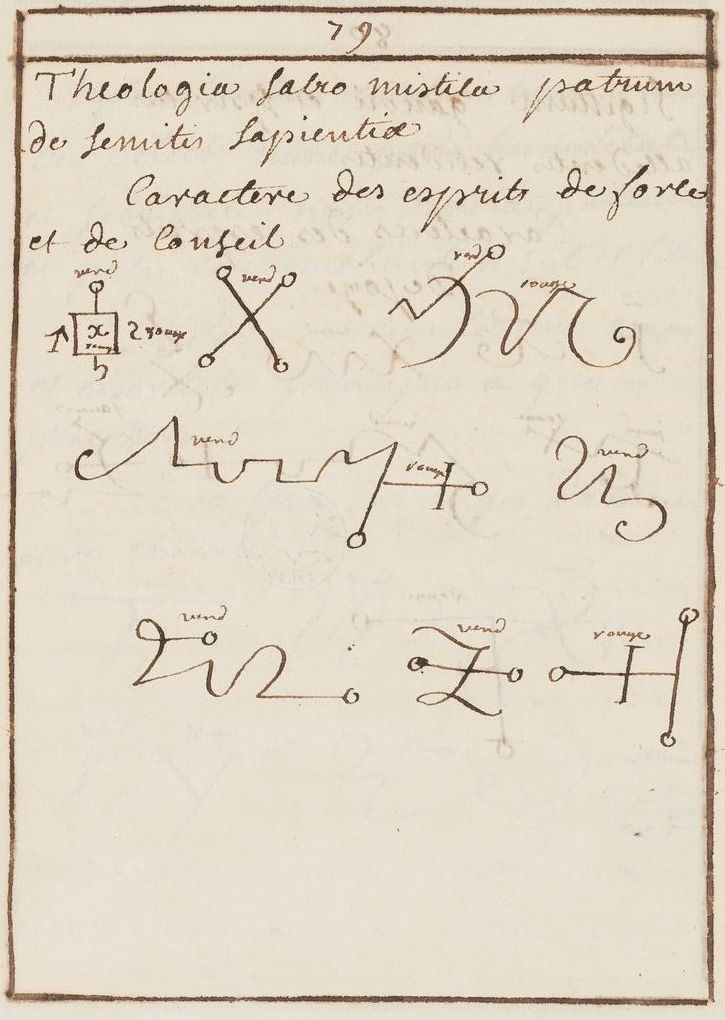 79
Theologia sacro mistica patrum
de semitis sapientiæ
Caractere des esprits de force
et de Conseil
verd verd verd rouge
x rouge
verd rouge verd
verd verd rouge